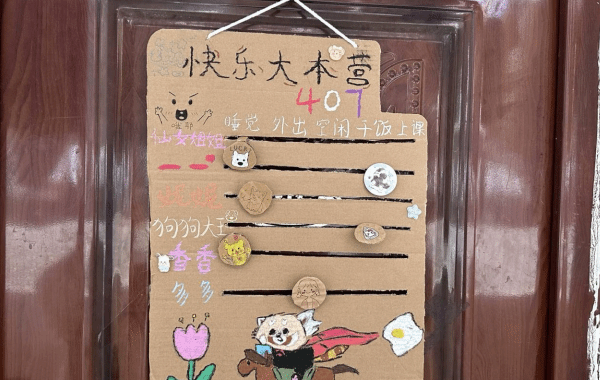 快乐大本营
407
睡觉 外出 空闲 干饭 上课
仙女姐姐
狗狗大王
香香
多多